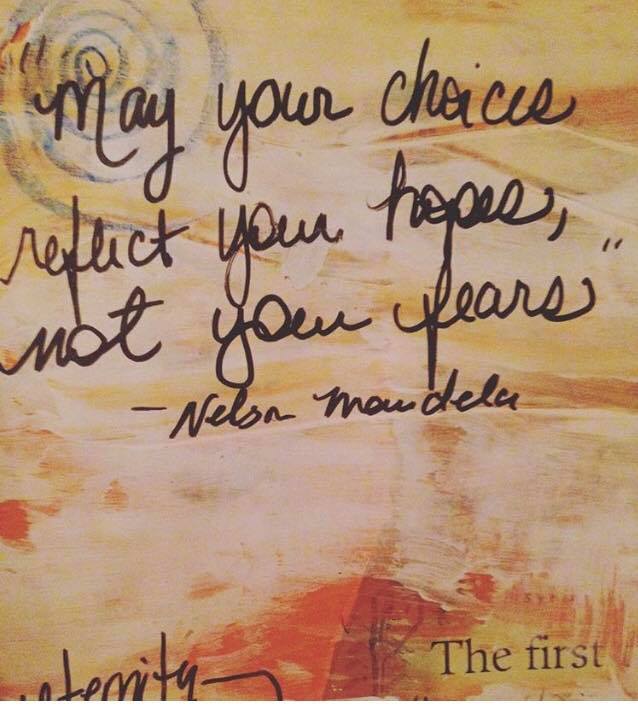 "May your choices
reflect your hopes,
not your fears"
- Nelson Mandela
The first
eternity